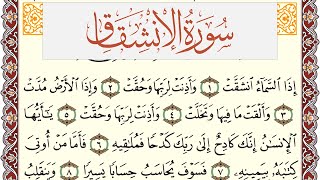 سُورَةُ الإِنْشِقَاقِ
إِذَا السَّمَاءُ انشَقَّتْ ١ وَأَذِنَتْ لِرَبِّهَا وَحُقَّتْ ٢ وَإِذَا الْأَرْضُ مُدَّتْ
٣ وَأَلْقَتْ مَا فِيهَا وَتَخَلَّتْ ٤ وَأَذِنَتْ لِرَبِّهَا وَحُقَّتْ ٥ يَا أَيُّهَا
الْإِنسَانُ إِنَّكَ كَادِحٌ إِلَى رَبِّكَ كَدْحًا فَمُلَاقِيهِ ٦ فَأَمَّا مَنْ أُوتِيَ
كِتَابَهُ بِيَمِينِهِ ٧ فَسَوْفَ يُحَاسَبُ حِسَابًا يَسِيرًا ٨ وَيَنقَلِبُ